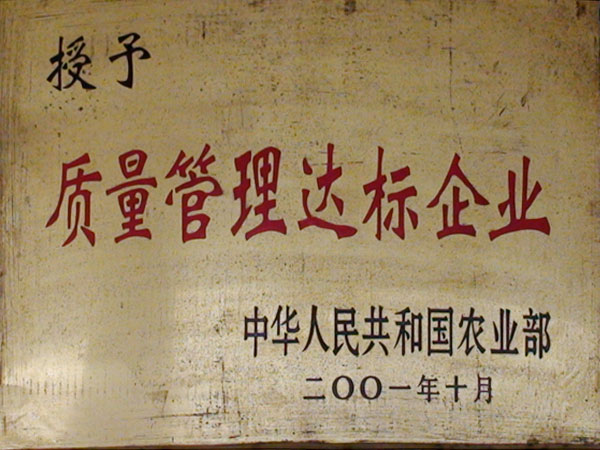 授予
质量管理达标企业
中华人民共和国农业部
二〇〇一年十月